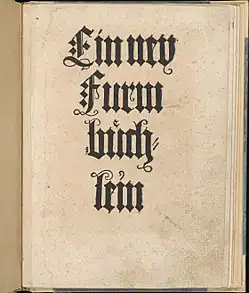 Ein new
Furm
büch-
lein